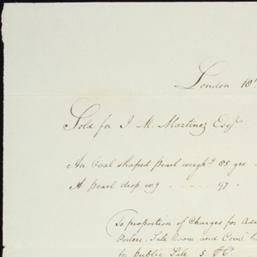 London 18
Sold for J. M. Martinez Esqr.
An Oval shaped pearl weighg. 85 grs
A pearl drop wg ..... 97 .
To proportion of Charges for Adv
Porters, Sale Room and Comn.
to public Sale 5